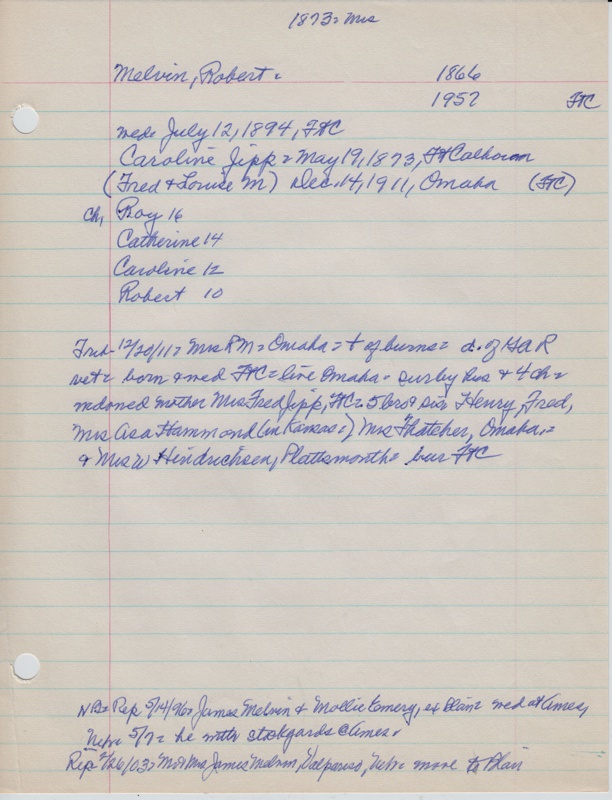 1873 = Mrs
Melvin, Robert = 1866
1957 FtC
wed = July 12, 1894, FtC
Caroline Jipp = May 19, 1873, Ft Calhoun
(Fred & Louise M) Dec. 14, 1911, Omaha (FtC)
ch, Roy 16
Catherine 14
Caroline 12
Robert 10
Trib 12/20/11 = Mrs RM = Omaha = + of burns = d. of GAR
vet = born & wed FtC = live Omaha = sur by hus & 4 ch =
widoned mother Mrs Fred Jipp, FtC = 5 bro & sis Henry, Fred,
Mrs Asa Hammond (in Kansas =) Mrs Thatcher, Omaha, =
& Mrs W Hindrichsen, Plattsmouth = bur FtC
NB = Rep 5/14/96 = James Melvin & Mollie Emery, ex Blair = wed at Ames,
Nebr 5/7 = he with stockyards @ Ames.
Rep 2/26/03 = Mr & Mrs James Melvin, Valparaiso, Nebr = move to Blair